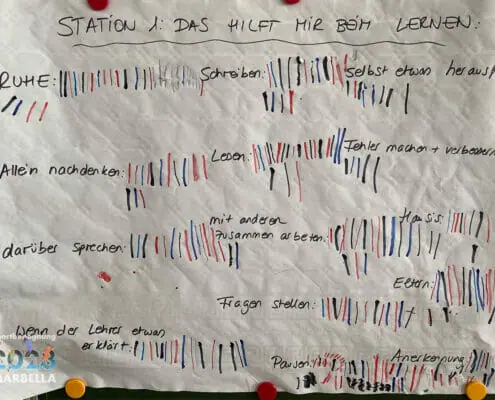 STATION 1: DAS HILFT MIR BEIM LERNEN:
RUHE:
Schreiben:
Selbst etwas heraus
Allein nachdenken:
Lesen:
Fehler machen + verbessern
darüber sprechen:
mit anderen
zusammen arbeiten:
Hausis:
Eltern:
Fragen stellen:
Wenn der Lehrer etwas
erklärt:
Pausen:
Anerkennung
2023
MARBELLA